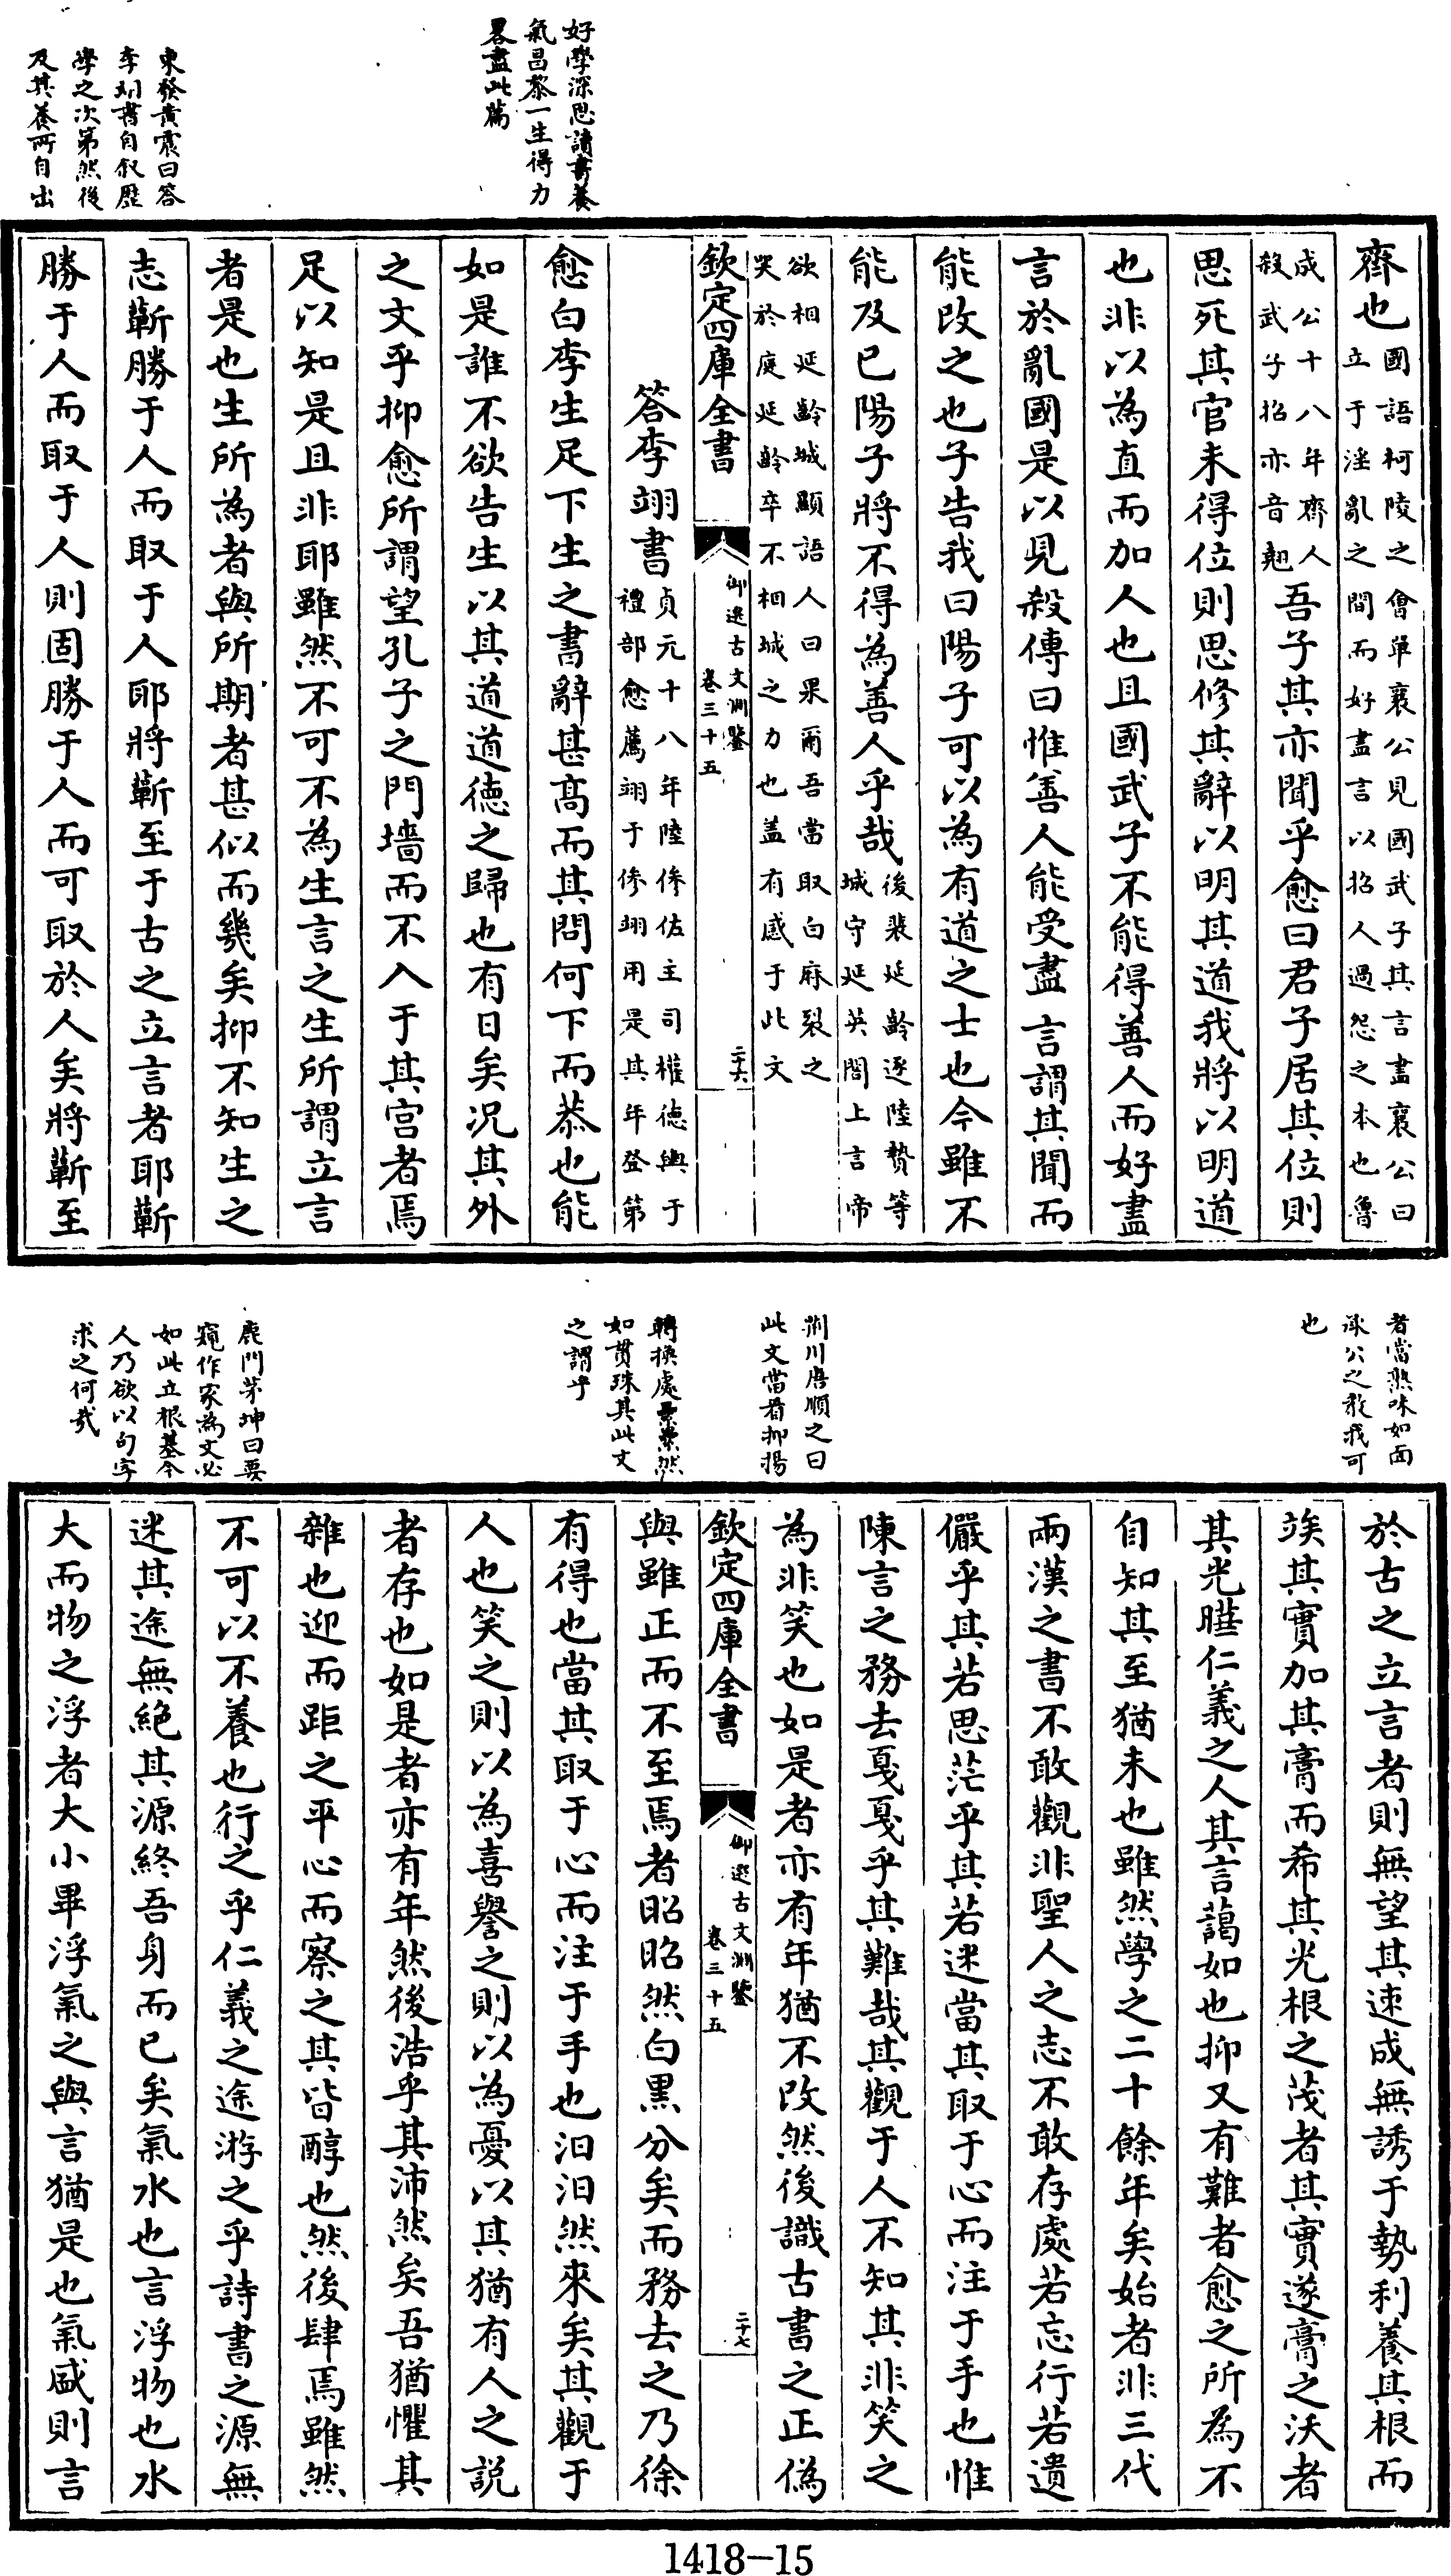 好學深思讀書養
氣昌黎一生得力
畧盡此篇
東發黃震曰答
李翊書自叙歷
學之次第然後
及其養所自出
齊也國語柯陵之會單襄公見國武子其言盡襄公曰
立于淫亂之間而好盡言以招人過怨之本也魯
成公十八年齊人
殺武子招亦音翹吾子其亦聞乎愈曰君子居其位則
思死其官未得位則思修其辭以明其道我將以明道
也非以為直而加人也且國武子不能得善人而好盡
言於亂國是以見殺傳曰惟善人能受盡言謂其聞而
能改之也子告我曰陽子可以為有道之士也今雖不
能及已陽子將不得為善人乎哉後裴延齡逐陸贄等
城守延英閤上言帝
欲相延齡城顯語人曰果爾吾當取白麻裂之
哭於庭延齡卒不相城之力也蓋有感于此文
欽定四庫全書
御選古文淵鑒
卷三十五
二十六
答李翊書貞元十八年陸傪佐主司權德輿于
禮部愈薦翊于傪翊用是其年登第
愈白李生足下生之書辭甚高而其問何下而恭也能
如是誰不欲告生以其道道德之歸也有日矣況其外
之文乎抑愈所謂望孔子之門墻而不入于其宮者焉
足以知是且非耶雖然不可不為生言之生所謂立言
者是也生所為者與所期者甚似而幾矣抑不知生之
志蘄勝于人而取于人耶將蘄至于古之立言者耶蘄
勝于人而取于人則固勝于人而可取於人矣將蘄至
者當熟味如面
承公之教我可
也
荊川唐順之曰
此文當看抑揚
轉換處纍纍然
如貫珠其此文
之謂乎
鹿門茅坤曰要
窺作家為文必
如此立根基今
人乃欲以句字
求之何哉
於古之立言者則無望其速成無誘于勢利養其根而
竢其實加其膏而希其光根之茂者其實遂膏之沃者
其光曄仁義之人其言藹如也抑又有難者愈之所為不
自知其至猶未也雖然學之二十餘年矣始者非三代
兩漢之書不敢觀非聖人之志不敢存處若忘行若遺
儼乎其若思茫乎其若迷當其取于心而注于手也惟
陳言之務去戛戛乎其難哉其觀于人不知其非笑之
為非笑也如是者亦有年猶不改然後識古書之正偽
欽定四庫全書
御選古文淵鑒
卷三十五
二十七
與雖正而不至焉者昭昭然白黑分矣而務去之乃徐
有得也當其取于心而注于手也汩汩然來矣其觀于
人也笑之則以為喜譽之則以為憂以其猶有人之說
者存也如是者亦有年然後浩乎其沛然矣吾猶懼其
雜也迎而距之平心而察之其皆醇也然後肆焉雖然
不可以不養也行之乎仁義之途游之乎詩書之源無
迷其途無絕其源終吾身而已矣氣水也言浮物也水
大而物之浮者大小畢浮氣之與言猶是也氣盛則言
1418-15